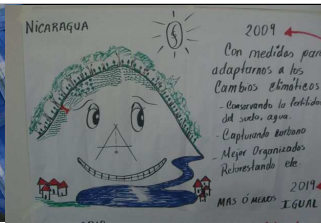 NICARAGUA
2009
Con medidas para
adaptarnos a los
Cambios climáticos
- Conservando la fertilidad
del suelo, agua.
- Capturando carbono
- Mejor Organizados
Reforestando etc.
2019
MAS Ó MENOS IGUAL